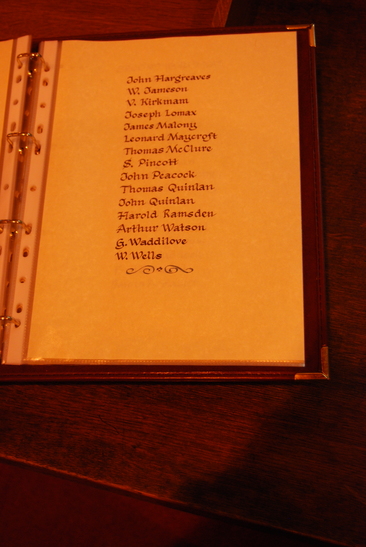 John Hargreaves
W. Jameson
V. Kirkmam
Joseph Lomax
James Malony
Leonard Maycroft
Thomas McClure
S. Pincott
John Peacock
Thomas Quinlan
John Quinlan
Harold Ramsden
Arthur Watson
G. Waddilove
W. Wells